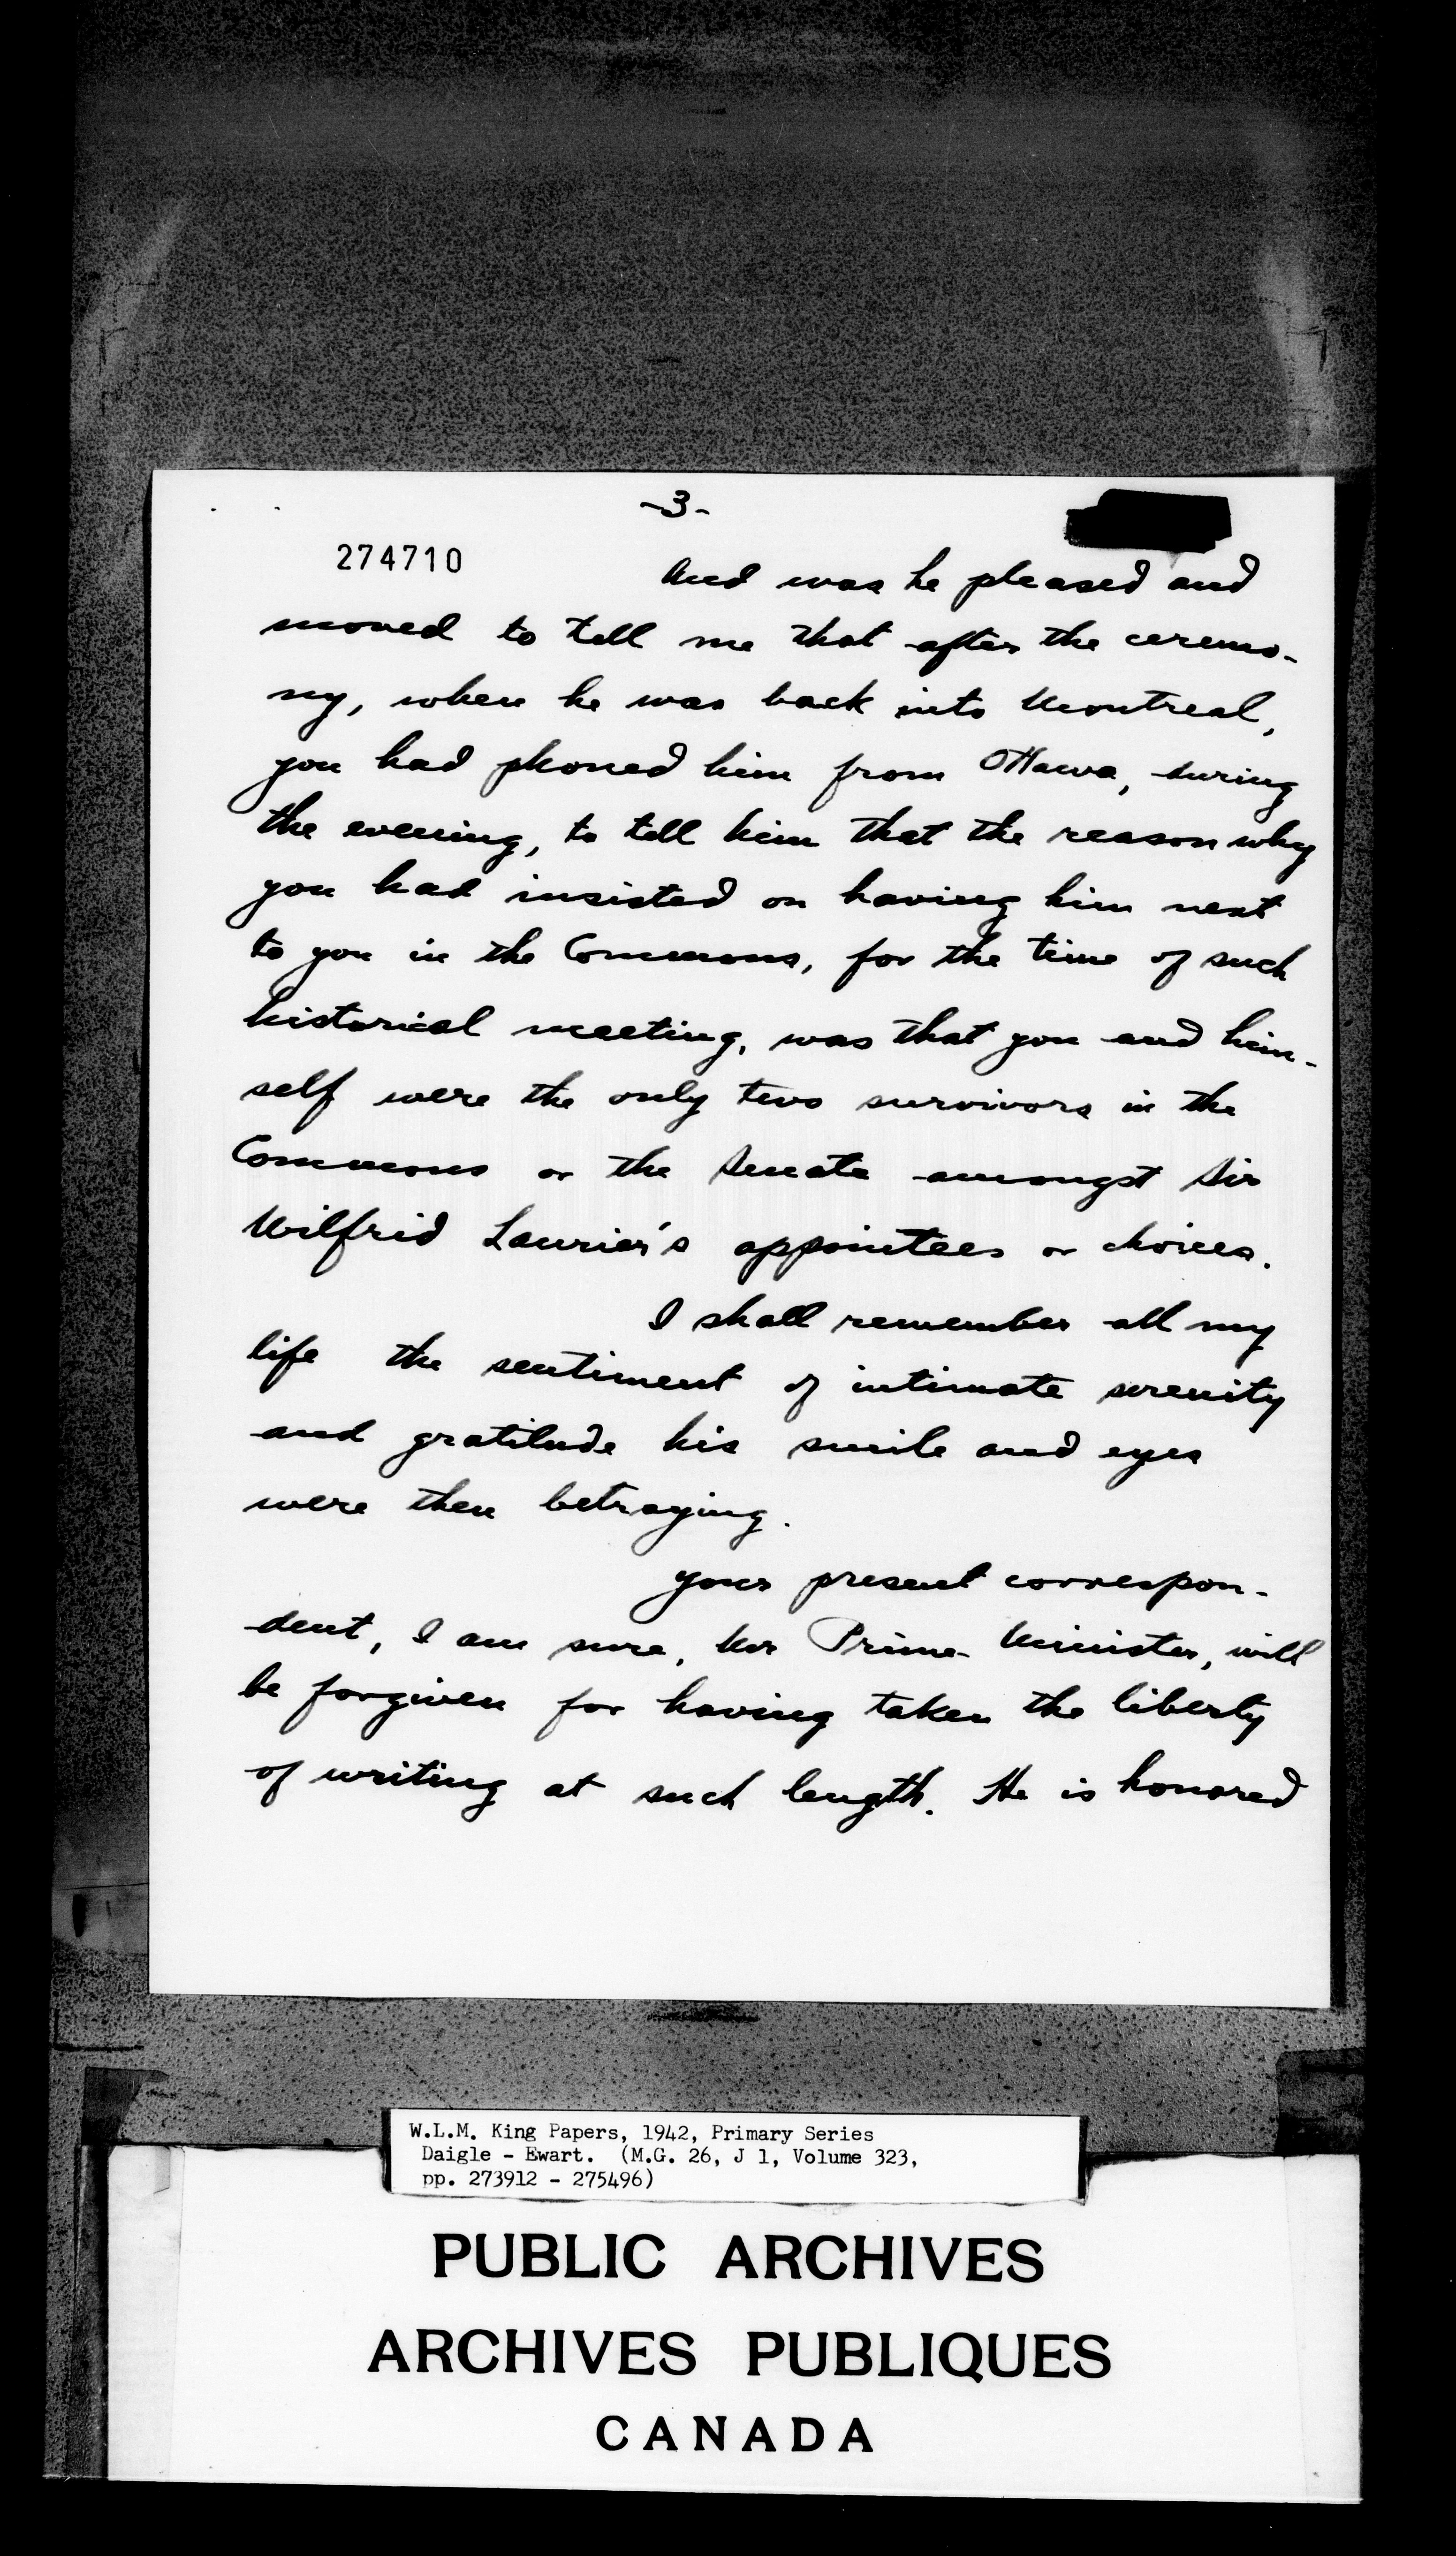 -3-
274710
And was he pleased and
moved to tell me that after the ceremo-
ny, when he was back into Montreal,
you had phoned him from Ottawa, during
the evening, to tell him that the reason why
you had insisted on having him next
to you in the Commons, for the time of such
historical meeting, was that you and him-
self were the only two survivors in the
Commons or the Senate amongst Sir
Wilfrid Laurier's appointees or choices.
I shall remember all my
life the sentiment of intimate serenity
and gratitude his smile and eyes
were then betraying.
Your present correspon-
dent, I am sure, Mr Prime-Minister, will
be forgiven for having taken the liberty
of writing at such length. He is honored
W.L.M. King Papers, 1942, Primary Series
Daigle - Ewart. (M.G. 26, J 1, Volume 323,
pp. 273912 - 275496)
PUBLIC ARCHIVES
ARCHIVES PUBLIQUES
CANADA